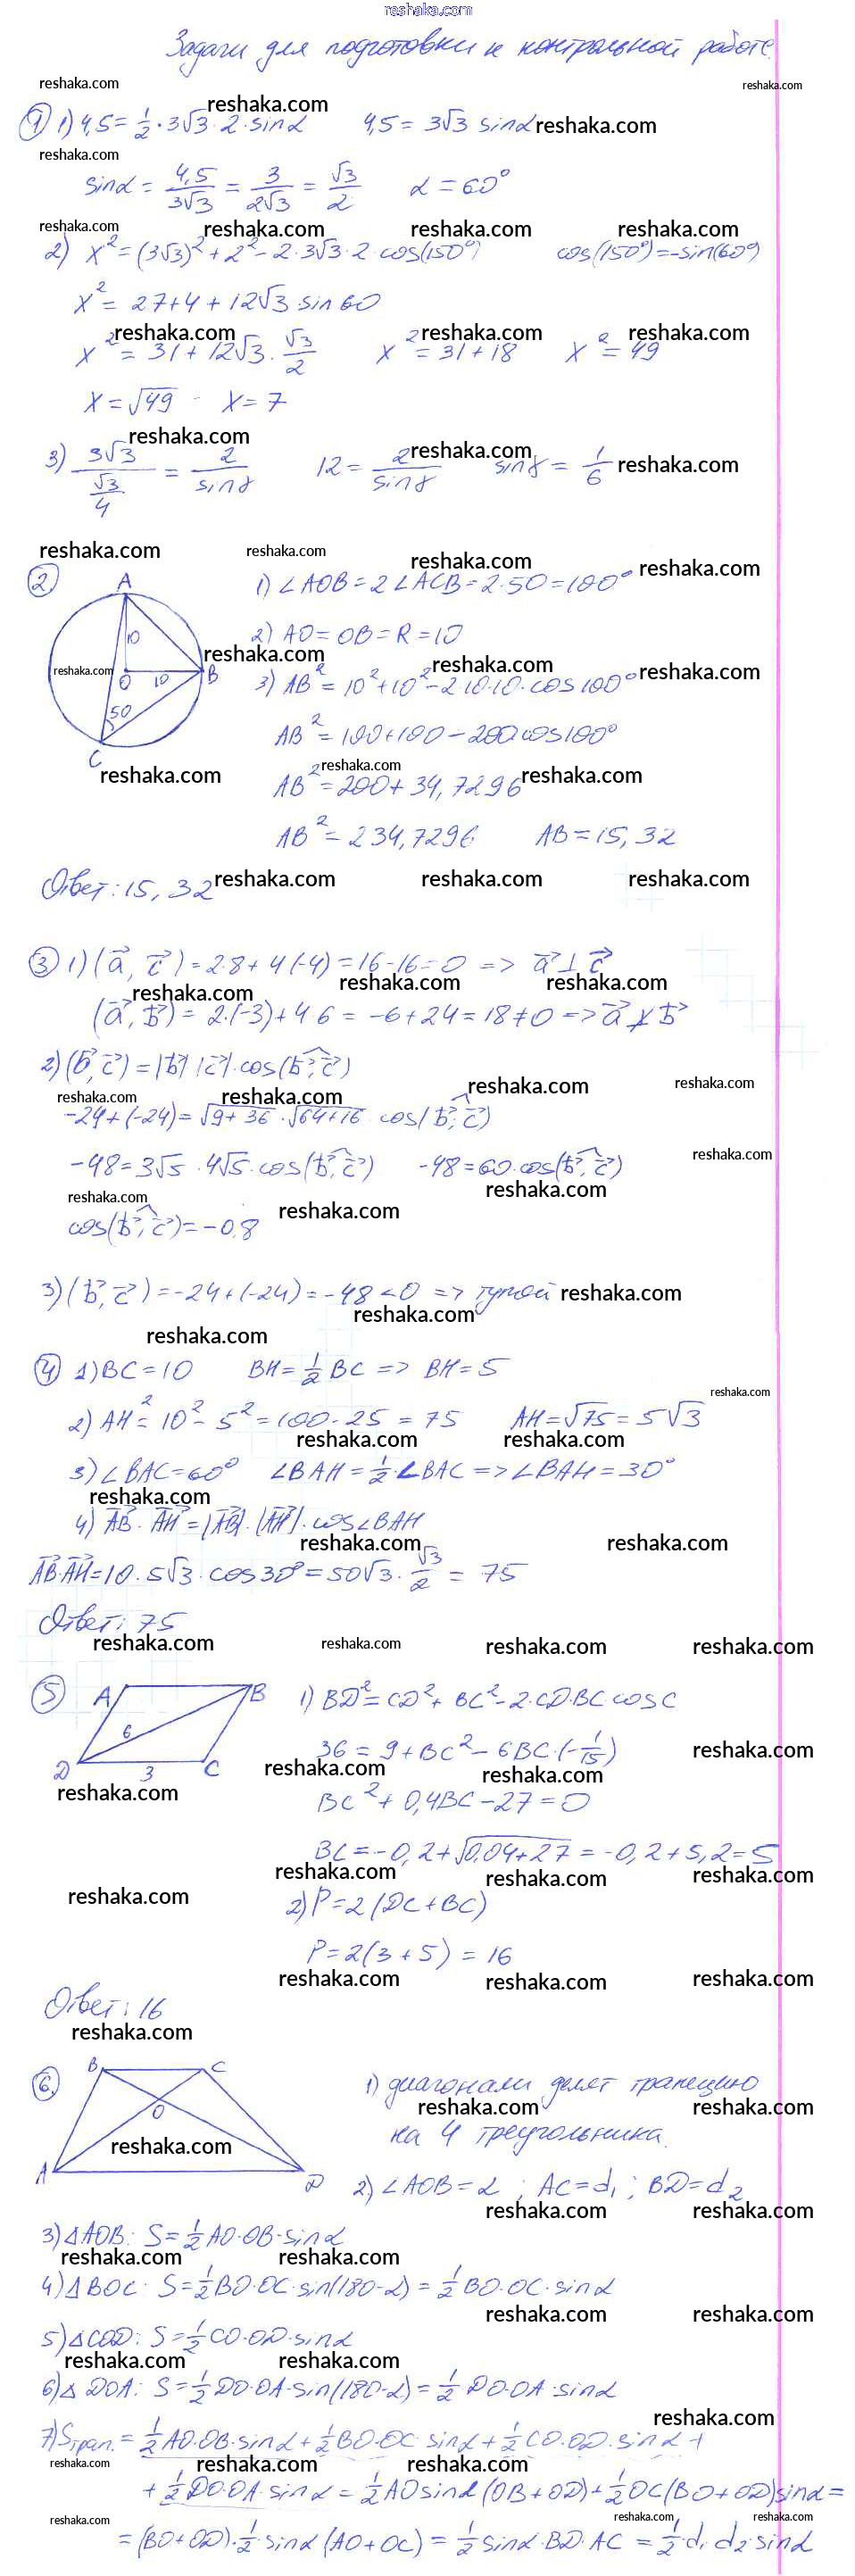 reshaka.com
Задачи для подготовки к контрольной работе.
reshaka.com reshaka.com
reshaka.com
① 1) 4,5 = 1/2 · 3√3 · 2 · sinα 4,5 = 3√3 sinα reshaka.com
reshaka.com
sinα = 4,5/3√3 = 3/2√3 = √3/2 α = 60°
reshaka.com reshaka.com reshaka.com reshaka.com
2) x² = (3√3)² + 2² - 2·3√3·2·cos(150°) cos(150°) = -sin(60°)
x² = 27+4+12√3 sin60
reshaka.com reshaka.com reshaka.com
x² = 31+12√3·√3/2 x² = 31+18 x² = 49
x = √49 x = 7
reshaka.com
3) 3√3/(√3/4) = 2/sinγ 12 = 2/sinγ sinγ = 1/6 reshaka.com
reshaka.com
reshaka.com reshaka.com
reshaka.com
② A 1) ∠AOB = 2∠ACB = 2·50 = 100° reshaka.com
10 2) AO = OB = R = 10
reshaka.com
reshaka.com O 10 B reshaka.com reshaka.com
3) AB² = 10²+10²-2·10·10·cos100°
50 AB² = 100+100-200cos100°
C
reshaka.com reshaka.com reshaka.com
AB² = 200+34,7296
AB² = 234,7296 AB = 15,32
Ответ: 15,32 reshaka.com reshaka.com reshaka.com
③ 1) (a⃗, c⃗) = 2·8+4(-4) = 16-16 = 0 => a⃗ ⊥ c⃗
reshaka.com reshaka.com reshaka.com
(a⃗, b⃗) = 2·(-3)+4·6 = -6+24 = 18 ≠ 0 => a⃗ ⊥̸ b⃗
2) (b⃗, c⃗) = |b⃗| |c⃗|·cos(b⃗; c⃗)
reshaka.com reshaka.com reshaka.com reshaka.com
-24+(-24) = √9+36 · √64+16 · cos(b⃗; c⃗)
-48 = 3√5 · 4√5 · cos(b⃗; c⃗) -48 = 60·cos(b⃗; c⃗) reshaka.com
reshaka.com reshaka.com reshaka.com
cos(b⃗; c⃗) = -0,8
3) (b⃗, c⃗) = -24+(-24) = -48 < 0 => тупой reshaka.com
reshaka.com
reshaka.com
④ 1) BC = 10 BH = 1/2 BC => BH = 5
reshaka.com
2) AH² = 10² - 5² = 100-25 = 75 AH = √75 = 5√3
reshaka.com reshaka.com
3) ∠BAC = 60° ∠BAH = 1/2 ∠BAC => ∠BAH = 30°
reshaka.com
4) AB⃗ · AH⃗ = |AB⃗|·|AH⃗|·cos∠BAH
reshaka.com reshaka.com
AB⃗·AH⃗ = 10·5√3·cos30° = 50√3·√3/2 = 75
Ответ: 75
reshaka.com reshaka.com reshaka.com reshaka.com
⑤ A B 1) BD² = CD²+BC²-2·CD·BC cosC
6 36 = 9+BC²-6BC·(-1/15) reshaka.com
D 3 C reshaka.com reshaka.com
reshaka.com
BC²+0,4BC-27 = 0
BC = -0,2+√0,04+27 = -0,2+5,2 = 5
reshaka.com reshaka.com reshaka.com
reshaka.com 2) P = 2(DC+BC)
P = 2(3+5) = 16
reshaka.com reshaka.com reshaka.com
Ответ: 16
reshaka.com
⑥ B C 1) диагонали делят трапецию
O reshaka.com reshaka.com
reshaka.com на 4 треугольника.
A D 2) ∠AOB = α ; AC = d₁ ; BD = d₂
reshaka.com reshaka.com
3) ΔAOB: S = 1/2 AO·OB·sinα
reshaka.com reshaka.com
4) ΔBOC: S = 1/2 BO·OC·sin(180-α) = 1/2 BO·OC·sinα
reshaka.com reshaka.com
5) ΔCOD: S = 1/2 CO·OD·sinα
reshaka.com reshaka.com
6) Δ DOA: S = 1/2 DO·OA·sin(180-α) = 1/2 DO·OA·sinα
reshaka.com
7) Sтрап. = 1/2 AO·OB·sinα + 1/2 BO·OC sinα + 1/2 CO·OD·sinα +
reshaka.com reshaka.com reshaka.com
+ 1/2 DO·OA·sinα = 1/2 AO sinα (OB+OD) + 1/2 OC(BO+OD) sinα =
reshaka.com reshaka.com reshaka.com
= (BO+OD)·1/2·sinα (AO+OC) = 1/2 sinα·BD·AC = 1/2·d₁ d₂ sinα